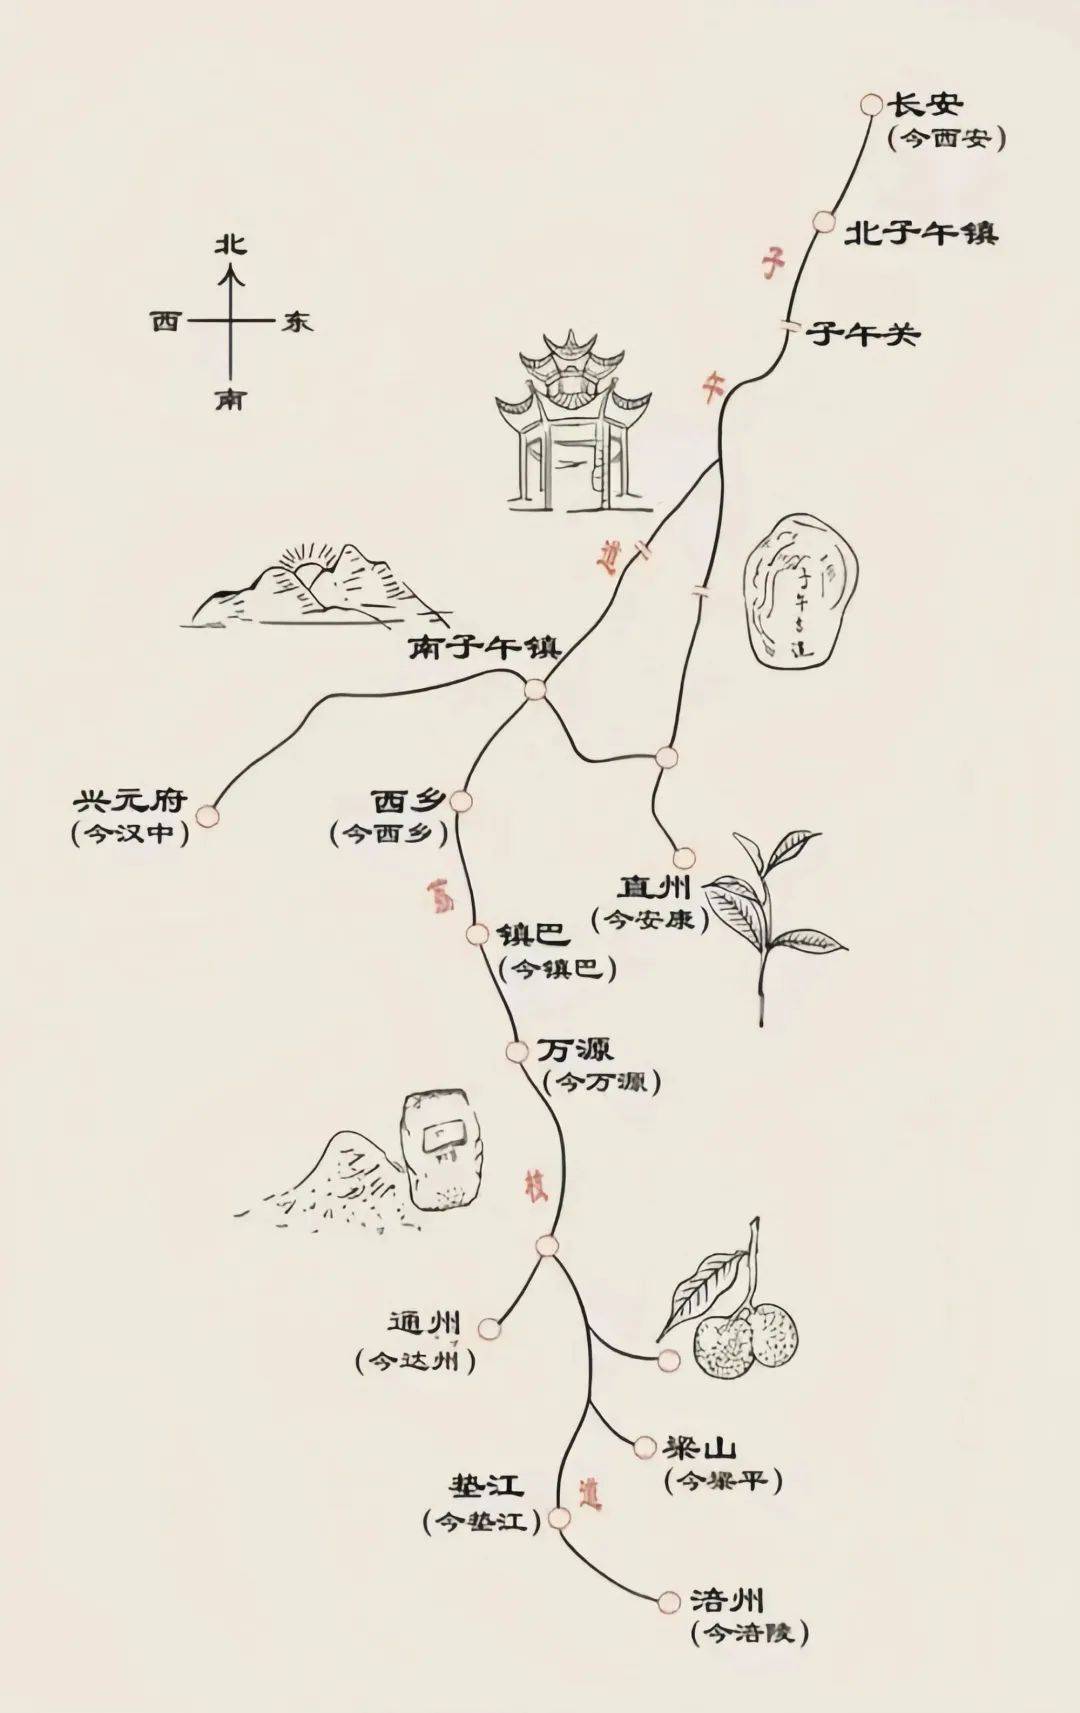 长安
(今西安)
北子午镇
子
子午关
北
西
东
南
午
道
子午古道
南子午镇
兴元府
(今汉中)
西乡
(今西乡)
直州
(今安康)
荔
镇巴
(今镇巴)
万源
(今万源)
枝
通州
(今达州)
梁山
(今梁平)
垫江
(今垫江)
道
涪州
(今涪陵)